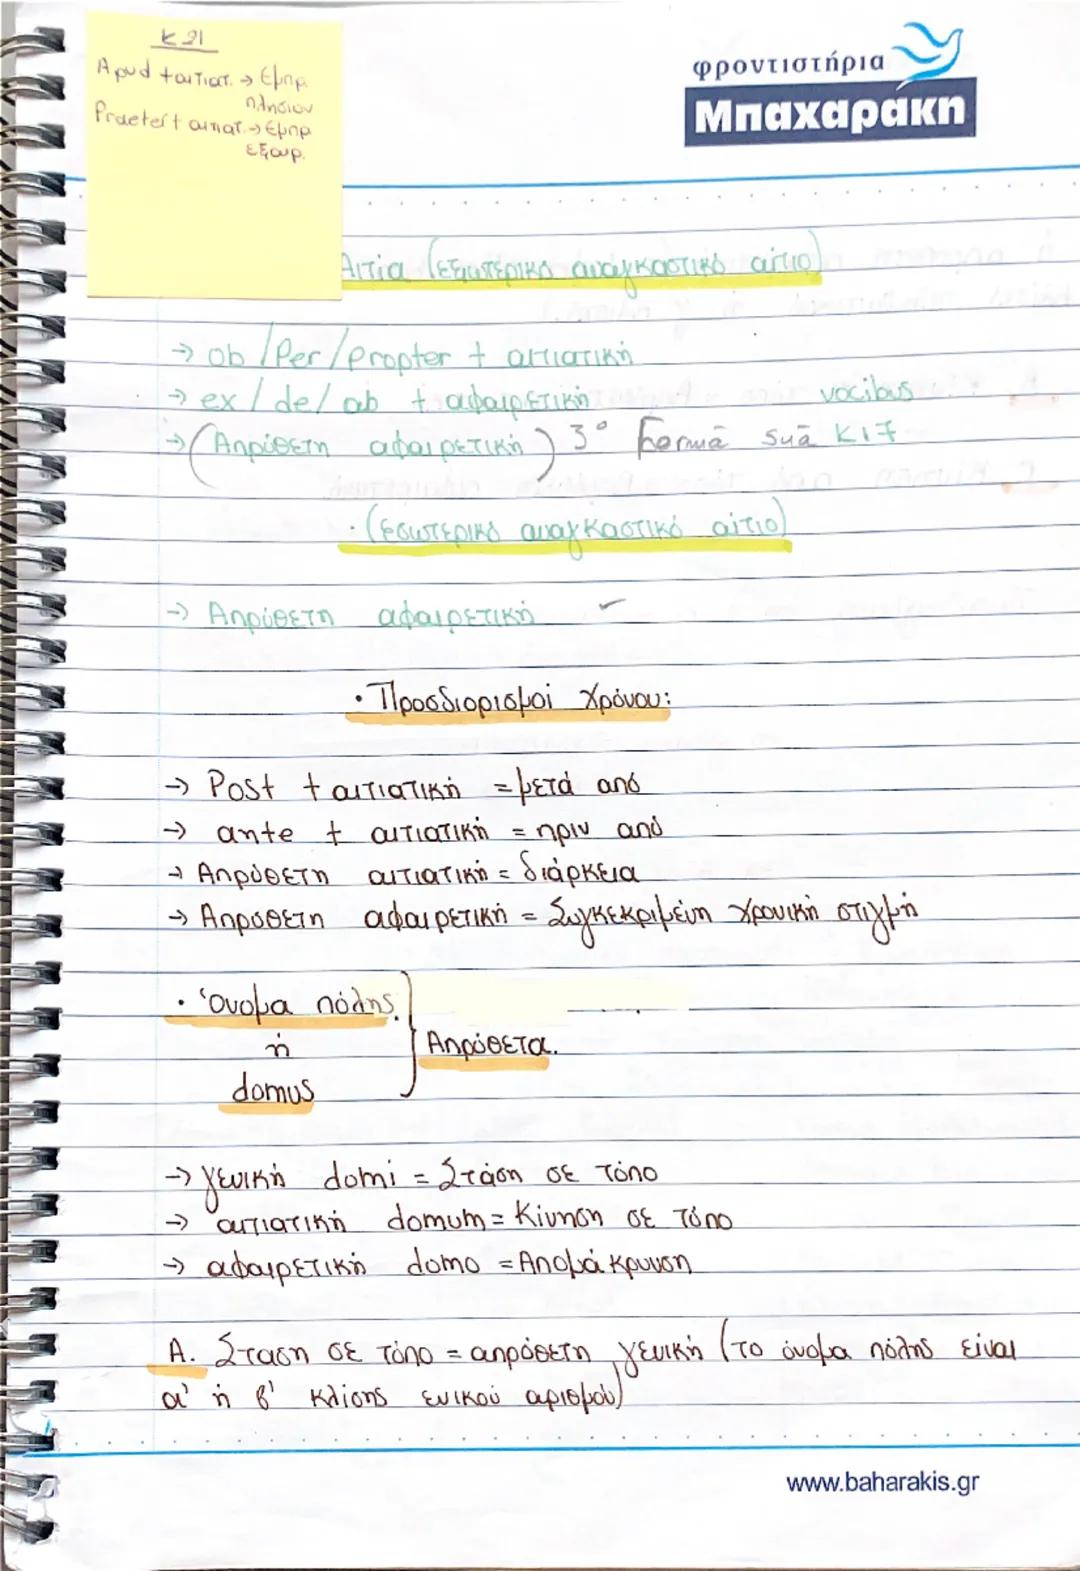 Κ 21
Apud + αιτιατ. → Εμπρ.
πλησίον
Praeter + αιτιατ. → Εμπρ
εξαιρ.
φροντιστήρια
Μπαχαράκη
Αιτία (εξωτερικό αναγκαστικό αίτιο)
→ ob / Per / propter + αιτιατική
→ ex / de / ab + αφαιρετική vocibus
→ (Απρόθετη αφαιρετική) 3° suā Κ17
· (εσωτερικό αναγκαστικό αίτιο)
→ Απρόθετη αφαιρετική
· Προσδιορισμοί Χρόνου:
→ Post + αιτιατική = μετά από
→ ante + αιτιατική = πριν από
→ Απρόθετη αιτιατική = διάρκεια
→ Απρόθετη αφαιρετική = Συγκεκριμένη χρονική στιγμή
· Όνομα πόλης
ή
domus
Απρόθετα.
→ γενική domi = Στάση σε τόπο
→ αιτιατική domum = Κίνηση σε τόπο
→ αφαιρετική domo = Απομάκρυνση
Α. Σταση σε τόπο = απρόθετη γενική (το όνομα πόλης είναι
α' ή β' κλίσης ενικού αρισμού)
www.baharakis.gr